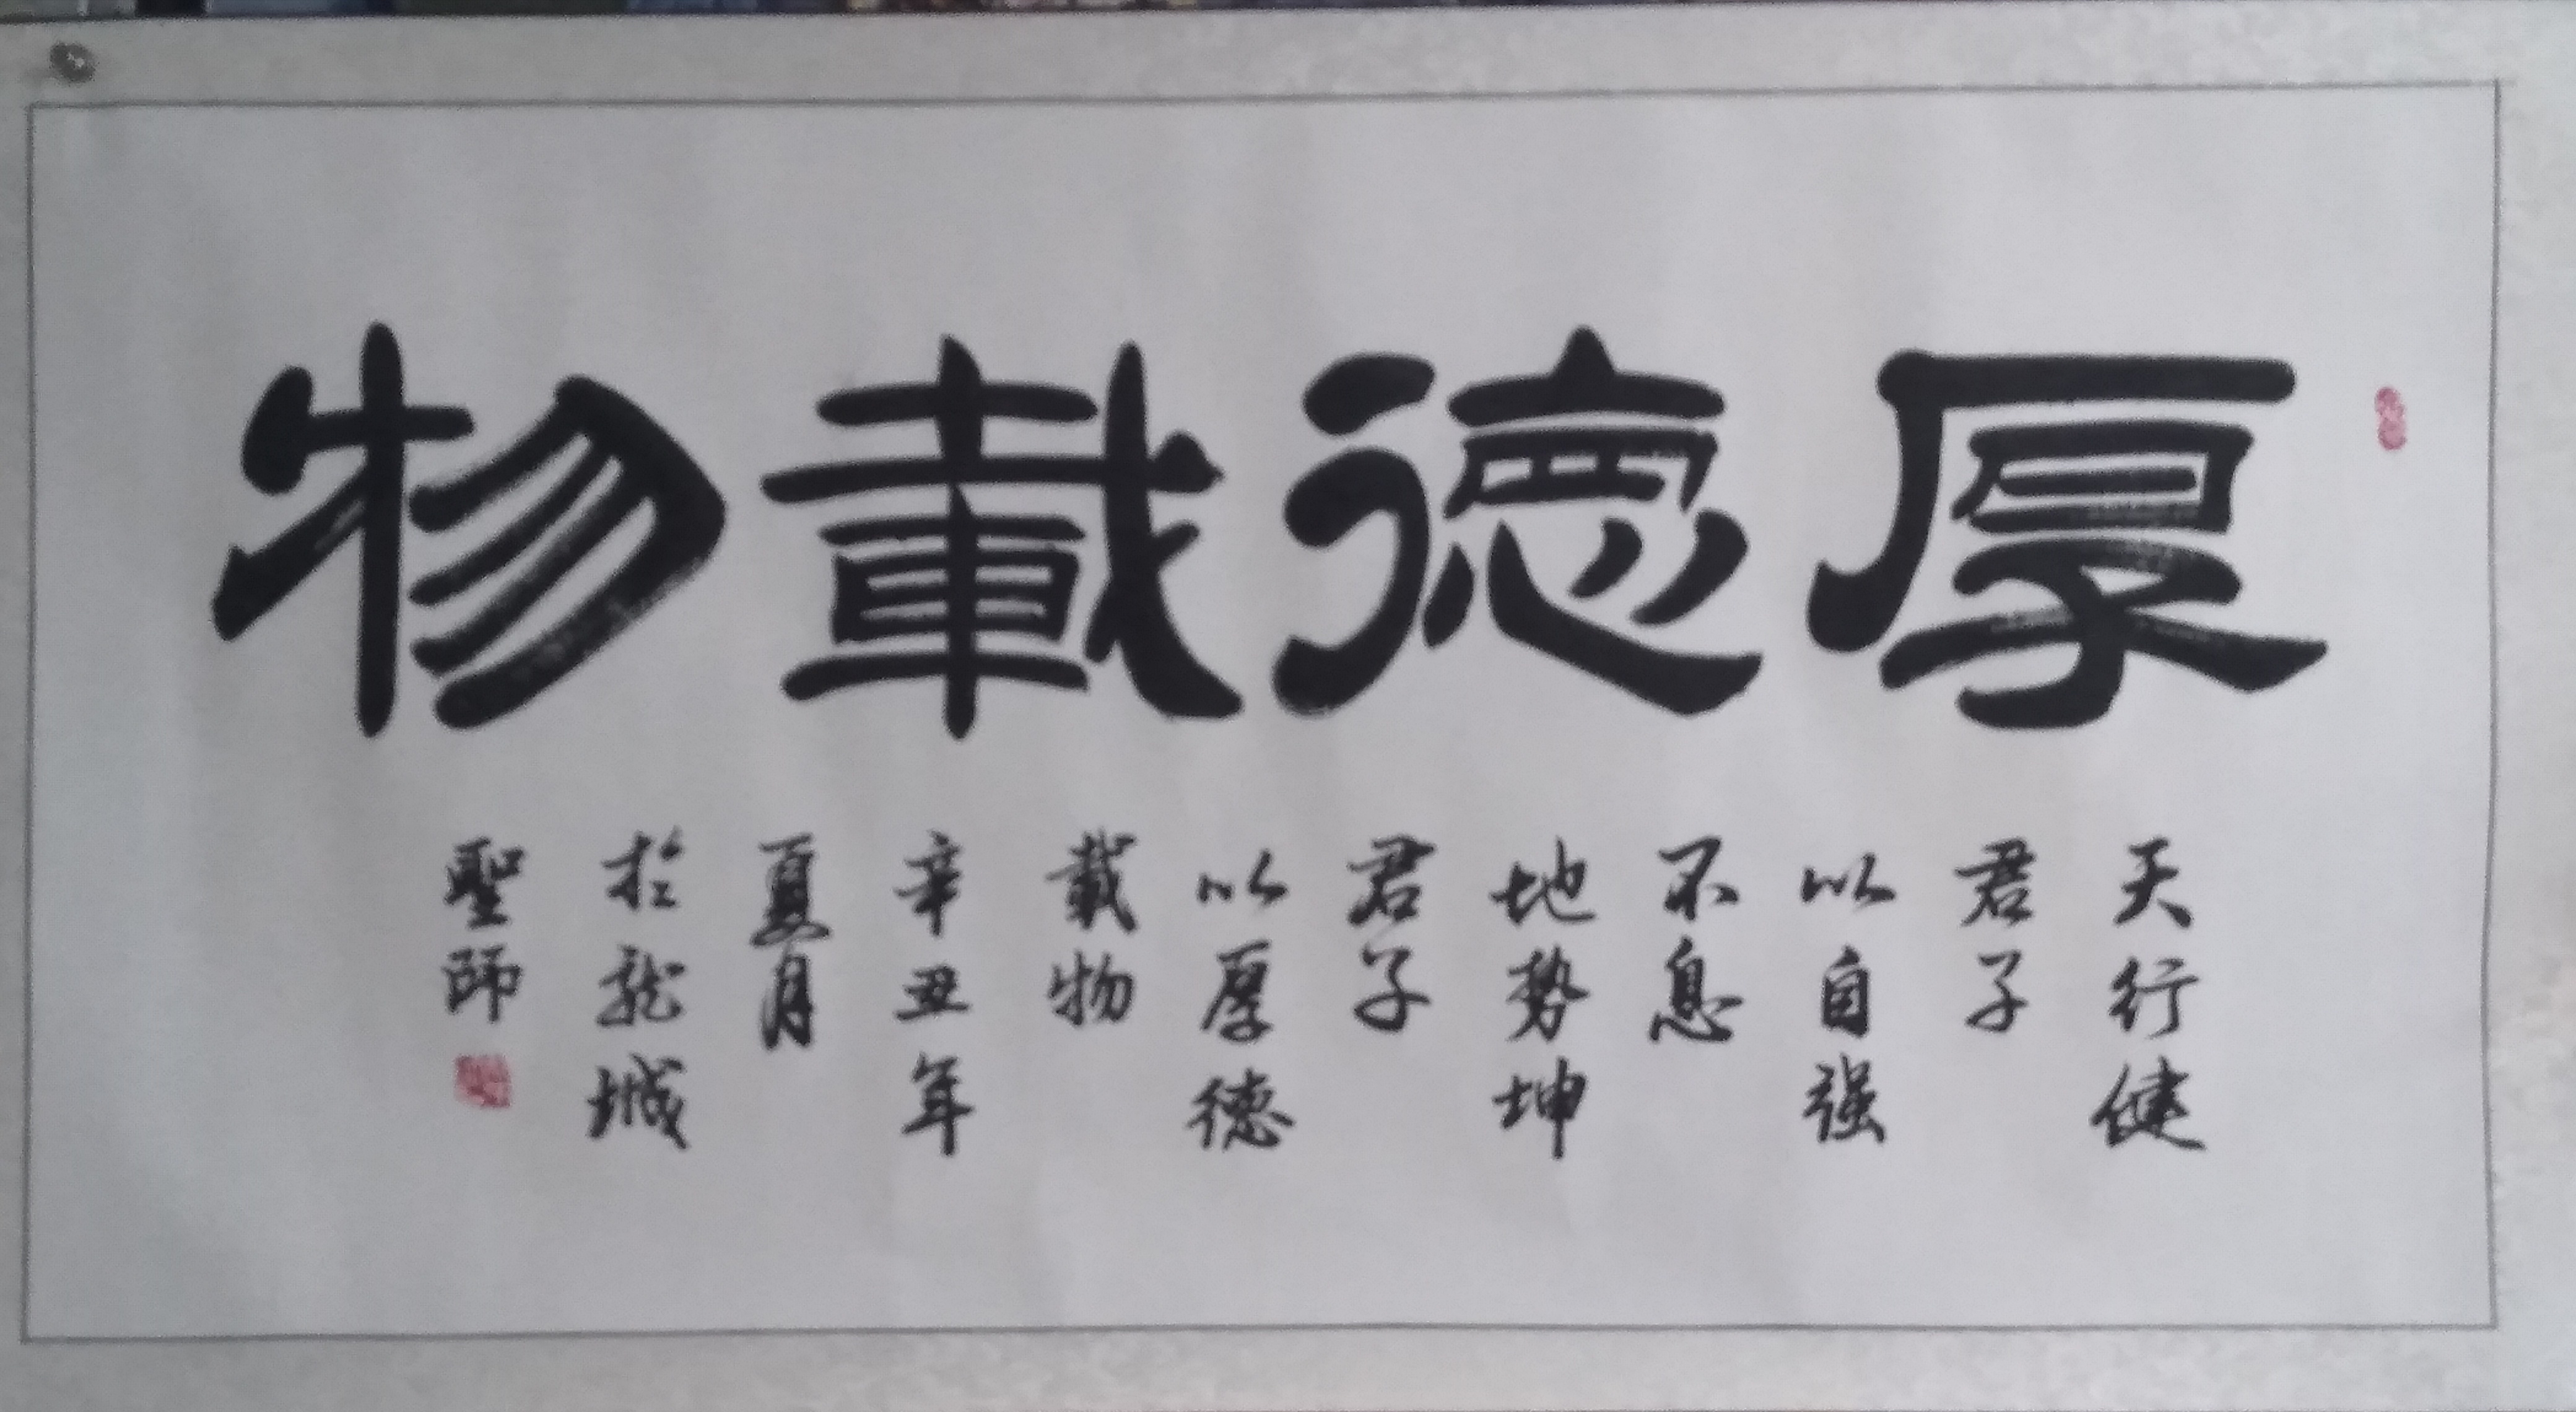 厚德載物
天行健
君子
以自强
不息
地势坤
君子
以厚德
載物
辛丑年
夏月
於龍城
聖師